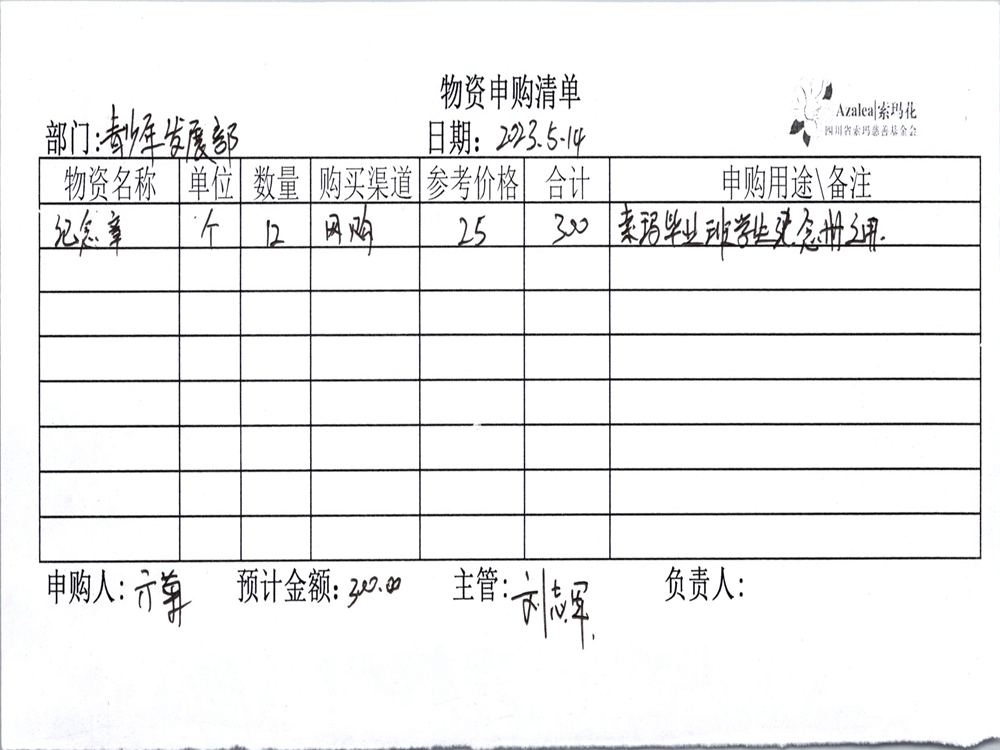 物资申购清单
Azalea|索玛花
四川省索玛慈善基金会
部门:青少年发展部 日期: 2023.5.14
物资名称 单位 数量 购买渠道 参考价格 合计 申购用途\备注
纪念章 个 12 网购 25 300 索玛毕业班学生纪念册用.
申购人: 预计金额: 300.00 主管: 刘志军. 负责人: